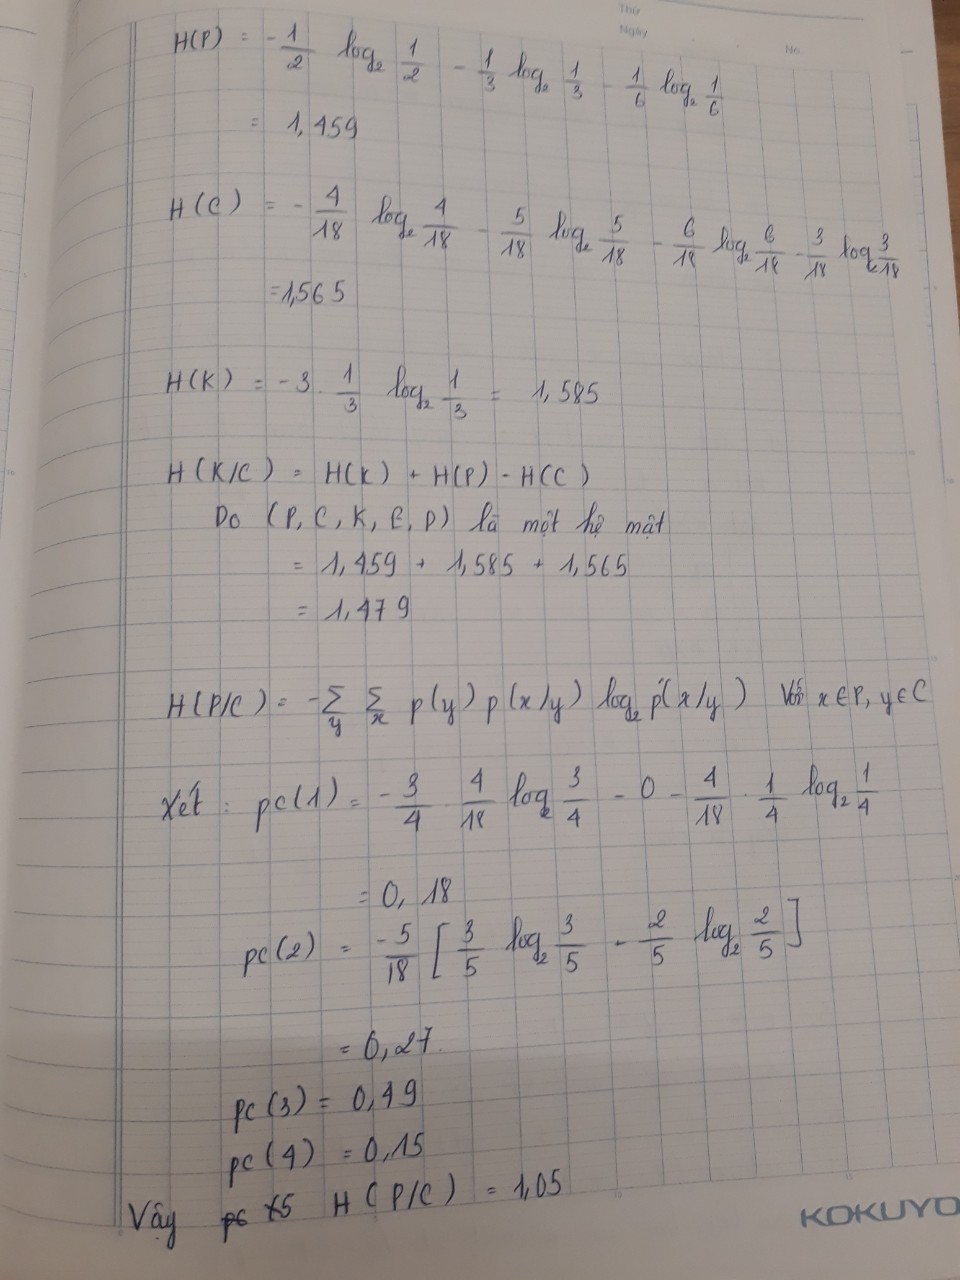 Thứ
Ngày
No
H(P) = - 1/2 log₂ 1/2 - 1/3 log₂ 1/3 - 1/6 log₂ 1/6
= 1,459
H(C) = - 4/18 log₂ 4/18 - 5/18 log₂ 5/18 - 6/18 log₂ 6/18 - 3/18 log₂ 3/18
= 1,565
H(K) = -3 . 1/3 log₂ 1/3 = 1,585
H(K/C) = H(K) + H(P) - H(C)
Do (P, C, K, E, D) là một hệ mật
= 1,459 + 1,585 + 1,565
= 1,479
H(P/C) = -∑y ∑x p(y) p(x/y) log₂ p(x/y) Với x∈P, y∈C
Xét : pc(1) = - 3/4 . 4/18 log₂ 3/4 - 0 - 4/18 . 1/4 log₂ 1/4
= 0,18
pc(2) = -5/18 [ 3/5 log₂ 3/5 - 2/5 log₂ 2/5 ]
= 0,27
pc(3) = 0,49
pc(4) = 0,15
Vậy H(P/C) = 1,05
KOKUYO